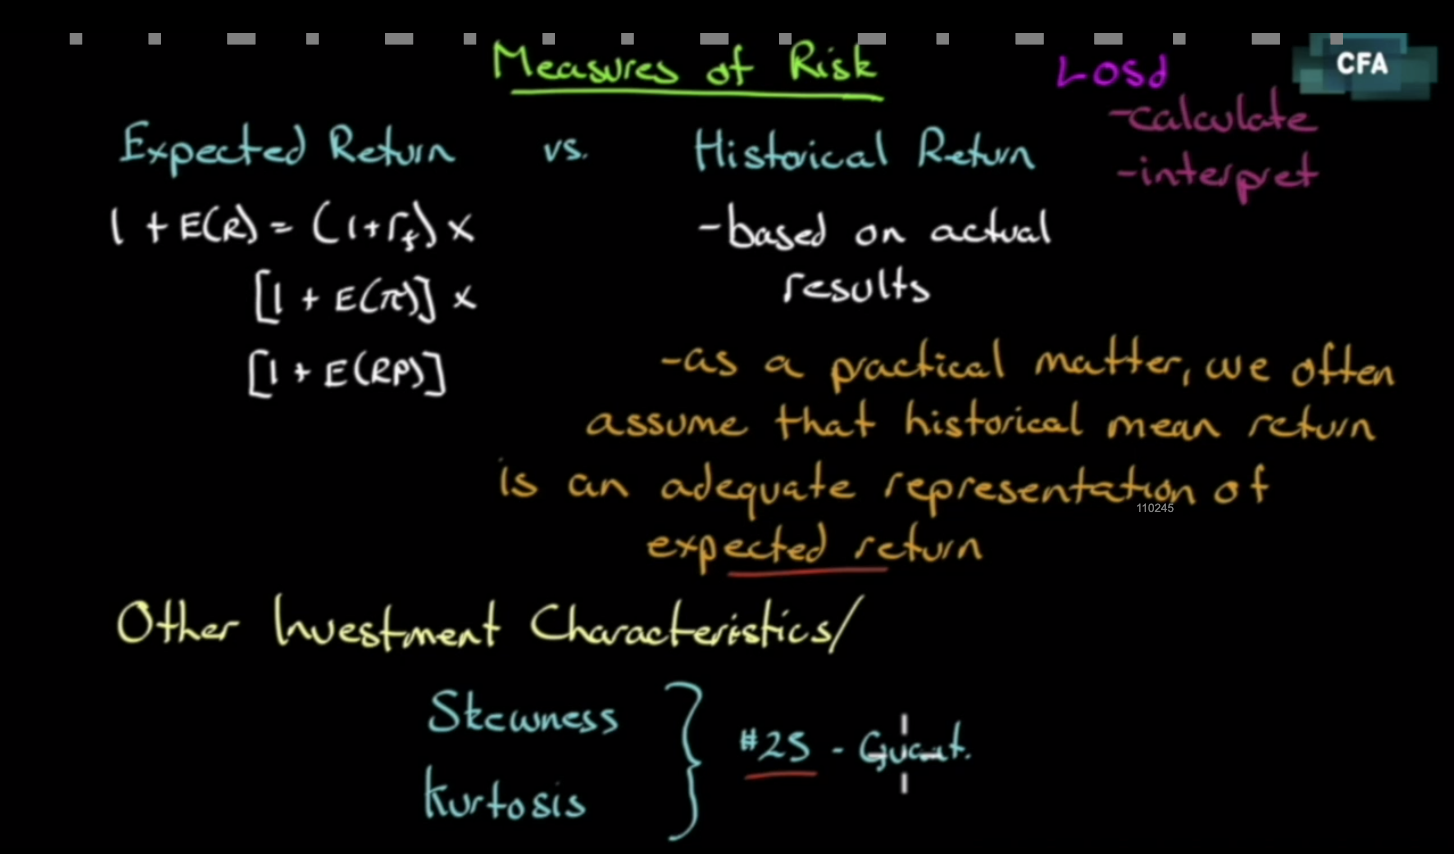 Measures of Risk
LOSd
CFA
-calculate
-interpret
Expected Return vs. Historical Return
1 + E(R) = (1+rf) x
[1 + E(π)] x
[1 + E(RP)]
-based on actual
results
-as a practical matter, we often
assume that historical mean return
is an adequate representation of
110245
expected return
Other Investment Characteristics/
Skewness
Kurtosis
#25 - Quant.